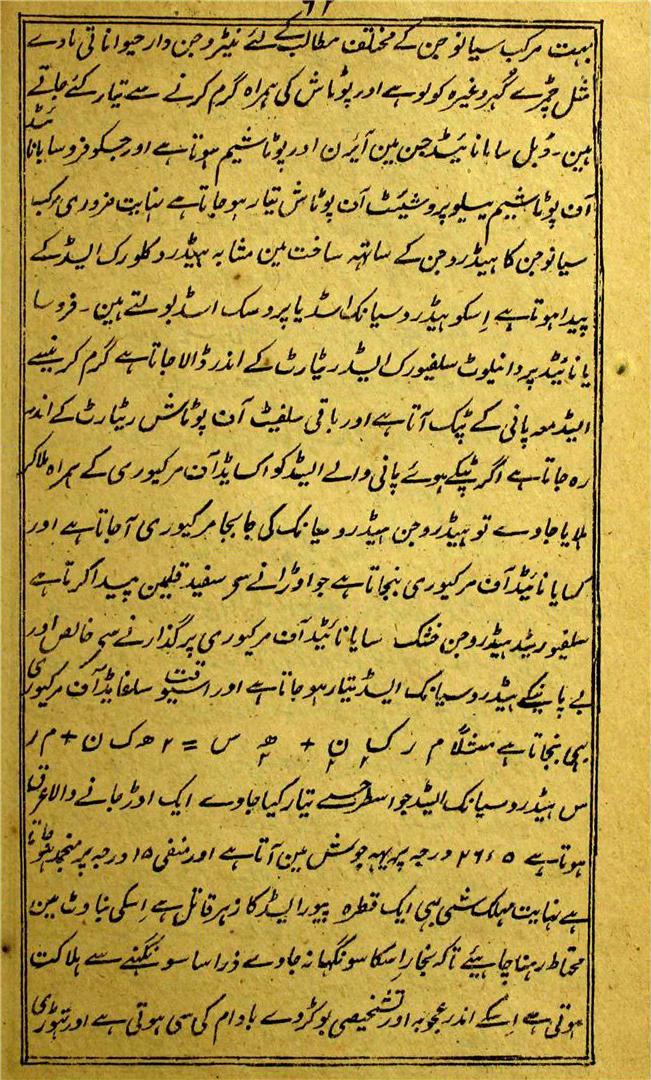 ۶۲
بہت مرکب سیانوجن کے مختلف مطالب کے لئے نیٹروجن دار حیواناتی مادے
مثل چمڑے کُہر وغیرہ کو لوہے اور پوٹاش کی ہمراہ گرم کرنے سے تیار کئے جاتے
ہین۔ ڈبل سایانائیڈ جن مین آیرن اور پوٹاشیم ہوتا ہے اور جسکو فروسایانائیڈ
آف پوٹاشیم ییلو پروشیئٹ آف پوٹاش تیار ہو جاتا ہے نہایت ضروری مرکب
سیانوجن کا ہیڈروجن کے ساتھ ساخت مین مشابہ ہیڈروکلورک ایسڈ کے
پیدا ہوتا ہے اِسکو ہیڈروسیانک اسڈ یا پروسک اسڈ بولتے ہین۔ فروسا
یانائیڈ پر دائیلوٹ سلفیورک ایسڈ ریٹارٹ کے اندر ڈالا جاتا ہے گرم کرنیسے
ایسڈ معہ پانی کے ٹپک آتا ہے اور باقی سلفیٹ آف پوٹاش ریٹارٹ کے اندر
رہ جاتا ہے اگر ٹپکے ہوئے پانی والے ایسڈ کو اکسایڈ آف مرکیوری کے ہمراہ ملاکر
ہلایا جاوے تو ہیڈروجن ہیڈروسیانک کی جا بجا مرکیوری آجاتا ہے اور
سایانائیڈ آف مرکیوری بنجاتا ہے جو اوڑانے سی سفید قلمین پیدا کرتا ہے
سلفیوریٹڈ ہیڈروجن خشک سایانائیڈ آف مرکیوری پر گذارنے سی خالص اور
بے پانیکے ہیڈروسیانک ایسڈ تیار ہو جاتا ہے اور اسیوقت سلفایڈ آف مرکیوری
بہی بنجاتا ہے مثلًا م ر ک۲ ن۲ + ھ۲ س = ۲ ھ ک ن + م ر
س ہیڈروسیانک ایسڈ جو اسطرحسے تیار کیا جاوے ایک اوڑ جانے والا عرق
ہوتا ہے ۲۶٫۵ درجہ پر یہہ جوش مین آتا ہے اور منفی ۱۵ درجہ پر منجمد ہو جاتا
ہے نہایت مہلک شی ہی ایک قطرہ پیور ایسڈ کا زہر قاتل ہے اِسکی بناوٹ مین
محتاط رہنا چاہیئے تاکہ بخار اِسکا سونگہا نہ جاوے ذرا سا سونگہنے سے ہلاکت
ہوتی ہے اِسکے اندر عجوبہ اور تشخیصی بو کڑوے بادام کی سی ہوتی ہے اور تہوڑی